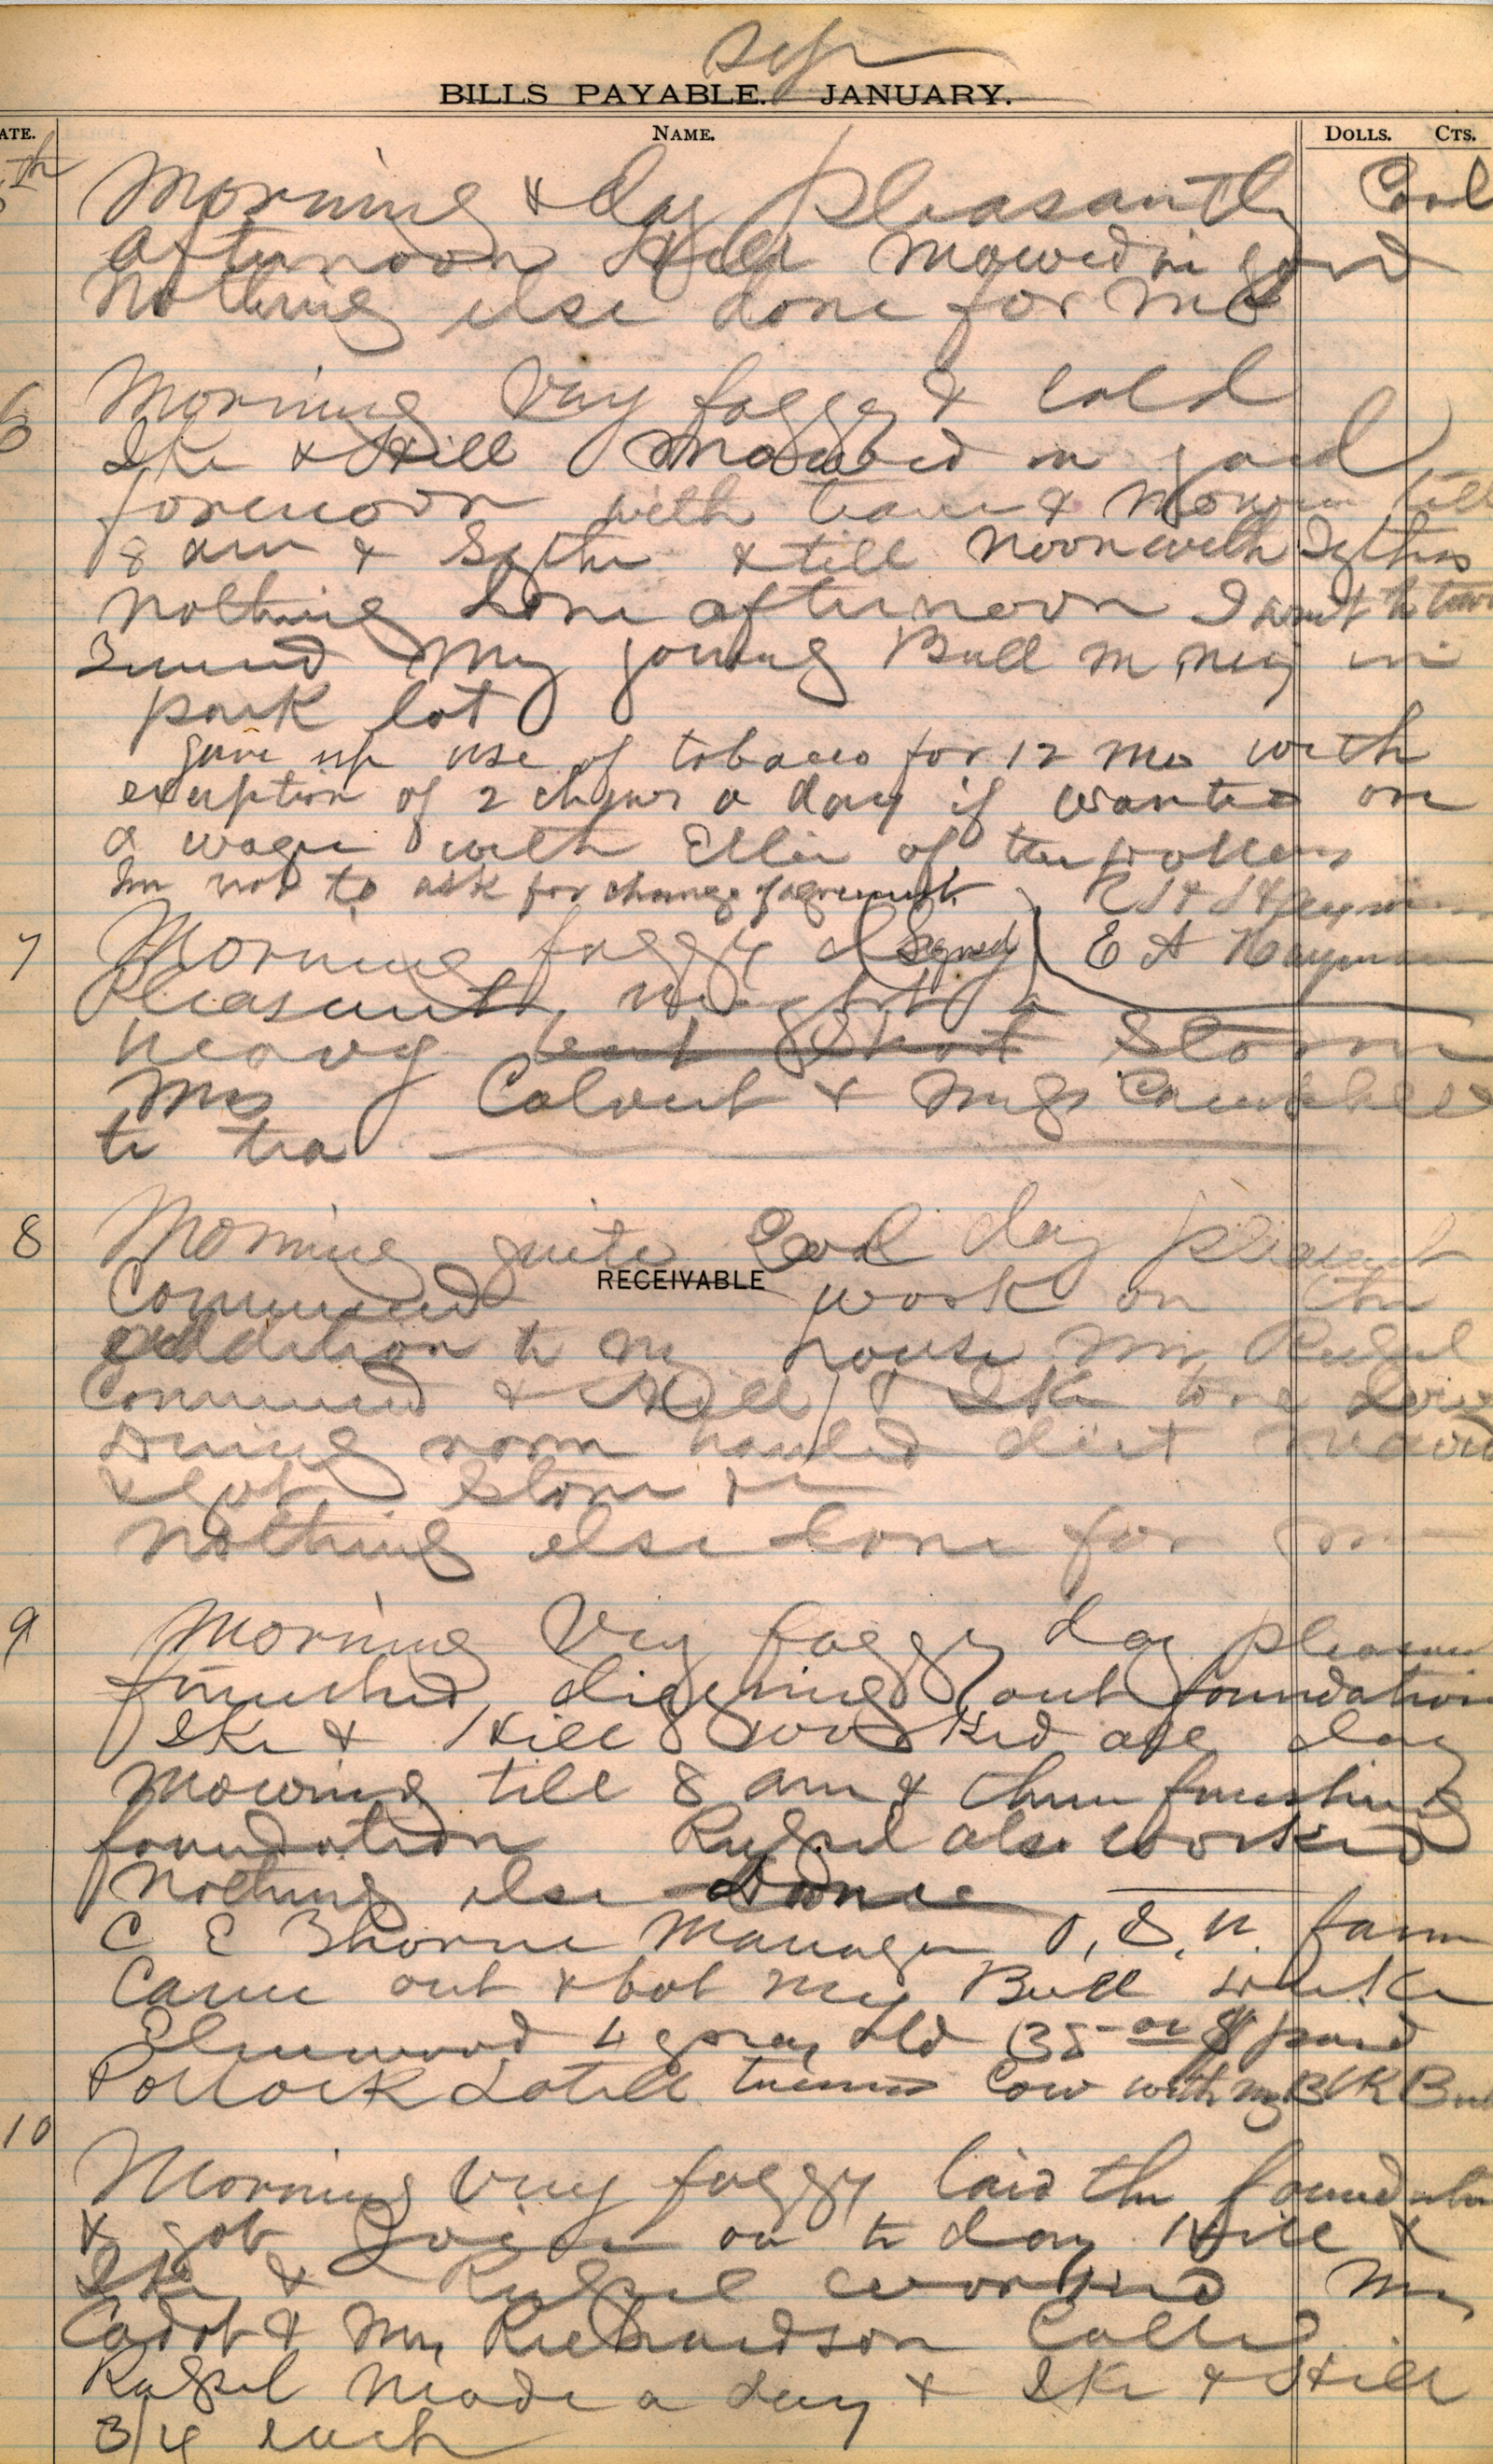 Sep
BILLS PAYABLE. JANUARY.
ATE. NAME. DOLLS. CTS.
5th Morning & day pleasantly Cool
afternoon Hill mowed in yard
Nothing else done for me
6 Morning Very foggy & cold
Ike & Hill Mowed in yard
forenoon with team & Mower till
8 am & Sythe & till Noon with Sythes
Nothing done afternoon I went to town
Turned My young Bull in
park lot
gave up use of tobacco for 12 mo with
exception of 2 chews a day if wanted on
a wager with Ellie of ten dollars
Im not to ask for change of agreement
7 Morning foggy d (Signed) E A Hayman
Pleasant, night a
heavy Storm
Mrs Calvert & Campbell
to tea
8 Morning quite Cool day pleasant
RECEIVABLE
Commenced work on the
addition to my house Mr Rugsel
Commenced & Hill & Ike
Dining room hauled dirt
& got Stone &c
Nothing else done for me
9 Morning Very foggy day pleasant
finished digging out foundation
Ike & Hill worked all day
Mowing till 8 am & then finishing
foundation Rugsel also worked
Nothing else Done
C E Thorne Manager O, S, U. farm
Came out & bot my Bull Duke
Elmwood 4 years old 135 00 $ paid
Pollock turned Cow with my BlK Bull
10 Morning Very foggy laid the foundation
& got on to day Hill &
Ike & Rugsel worked Mr
Cadot & Mr, Richardson Called
Rugsel Made a day & Ike & Hill
3/4 each